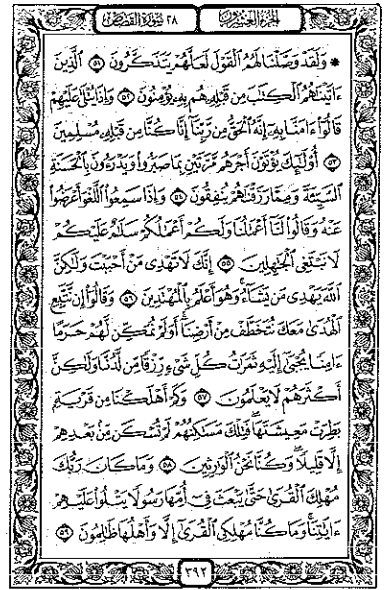 الجزء العشرون ٢٨ سورة القصص
۞ وَلَقَدْ وَصَّلْنَا لَهُمُ الْقَوْلَ لَعَلَّهُمْ يَتَذَكَّرُونَ ٥١ الَّذِينَ
ءَاتَيْنَاهُمُ الْكِتَابَ مِن قَبْلِهِ هُم بِهِ يُؤْمِنُونَ ٥٢ وَإِذَا يُتْلَىٰ عَلَيْهِمْ
قَالُوا ءَامَنَّا بِهِ إِنَّهُ الْحَقُّ مِن رَّبِّنَا إِنَّا كُنَّا مِن قَبْلِهِ مُسْلِمِينَ
٥٣ أُولَٰئِكَ يُؤْتَوْنَ أَجْرَهُم مَّرَّتَيْنِ بِمَا صَبَرُوا وَيَدْرَءُونَ بِالْحَسَنَةِ
السَّيِّئَةَ وَمِمَّا رَزَقْنَاهُمْ يُنفِقُونَ ٥٤ وَإِذَا سَمِعُوا اللَّغْوَ أَعْرَضُوا
عَنْهُ وَقَالُوا لَنَا أَعْمَالُنَا وَلَكُمْ أَعْمَالُكُمْ سَلَامٌ عَلَيْكُمْ
لَا نَبْتَغِي الْجَاهِلِينَ ٥٥ إِنَّكَ لَا تَهْدِي مَنْ أَحْبَبْتَ وَلَٰكِنَّ
اللَّهَ يَهْدِي مَن يَشَاءُ وَهُوَ أَعْلَمُ بِالْمُهْتَدِينَ ٥٦ وَقَالُوا إِن نَّتَّبِعِ
الْهُدَىٰ مَعَكَ نُتَخَطَّفْ مِنْ أَرْضِنَا أَوَلَمْ نُمَكِّن لَّهُمْ حَرَمًا
ءَامِنًا يُجْبَىٰ إِلَيْهِ ثَمَرَاتُ كُلِّ شَيْءٍ رِّزْقًا مِّن لَّدُنَّا وَلَٰكِنَّ
أَكْثَرَهُمْ لَا يَعْلَمُونَ ٥٧ وَكَمْ أَهْلَكْنَا مِن قَرْيَةٍ
بَطِرَتْ مَعِيشَتَهَا فَتِلْكَ مَسَاكِنُهُمْ لَمْ تُسْكَن مِّن بَعْدِهِمْ
إِلَّا قَلِيلًا وَكُنَّا نَحْنُ الْوَارِثِينَ ٥٨ وَمَا كَانَ رَبُّكَ
مُهْلِكَ الْقُرَىٰ حَتَّىٰ يَبْعَثَ فِي أُمِّهَا رَسُولًا يَتْلُوا عَلَيْهِمْ
ءَايَاتِنَا وَمَا كُنَّا مُهْلِكِي الْقُرَىٰ إِلَّا وَأَهْلُهَا ظَالِمُونَ ٥٩
٣٩٢